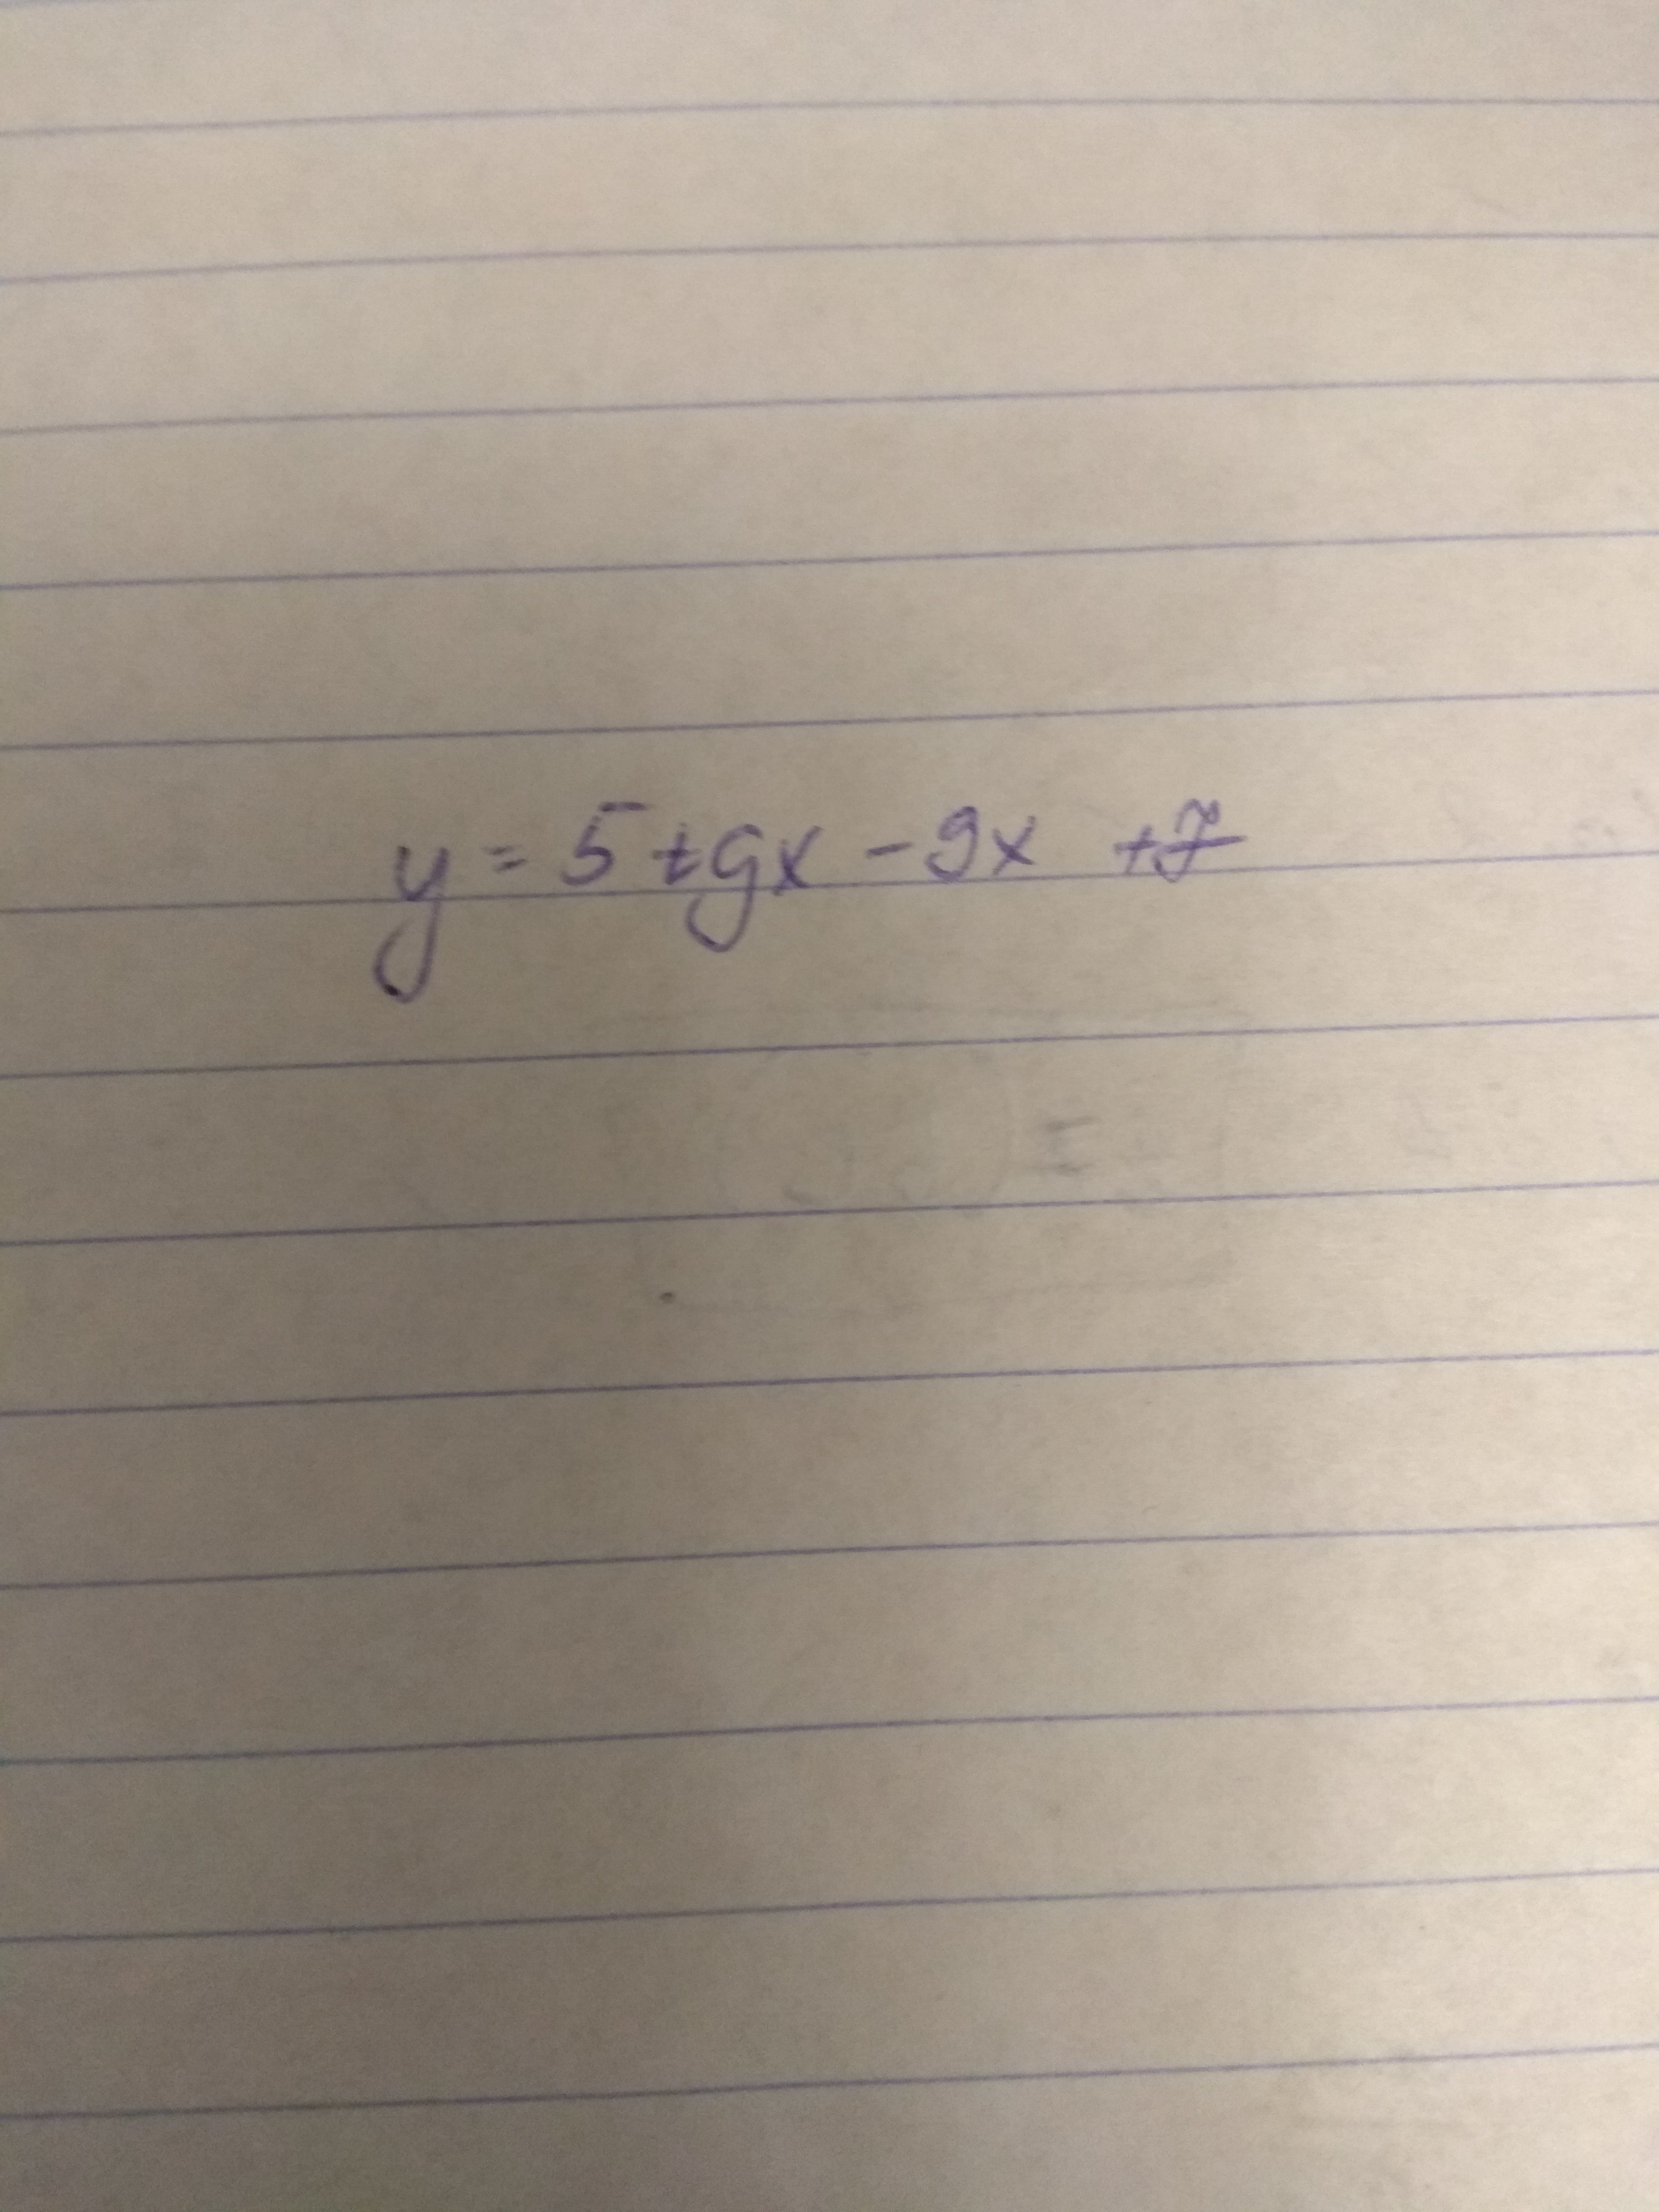 y = 5 tgx - 9x + 7